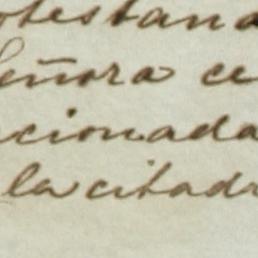 otestana
Señora ce
cionada
la citad